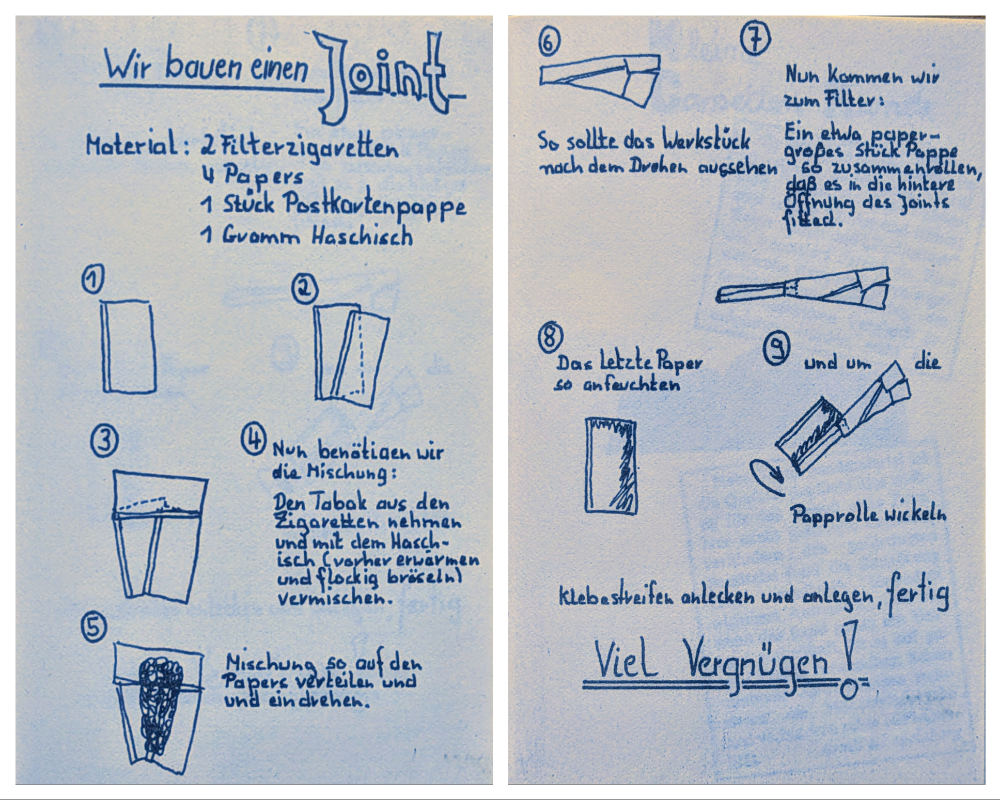 Wir bauen einen Joint
Material: 2 Filterzigaretten
4 Papers
1 Stück Postkartenpappe
1 Gramm Haschisch
1
2
3
4 Nun benötigen wir
die Mischung:
Den Tabak aus den
Zigaretten nehmen
und mit dem Hasch-
isch (vorher erwärmen
und flockig bröseln)
vermischen.
5
Mischung so auf den
Papers verteilen und
und eindrehen.
6
So sollte das Werkstück
nach dem Drehen aussehen
7
Nun kommen wir
zum Filter:
Ein etwa paper-
großes Stück Pappe
so zusammenrollen,
daß es in die hintere
Öffnung des Joints
fitted.
8
Das letzte Paper
so anfeuchten
9 und um die
Papprolle wickeln
Klebestreifen anlecken und anlegen, fertig
Viel Vergnügen!